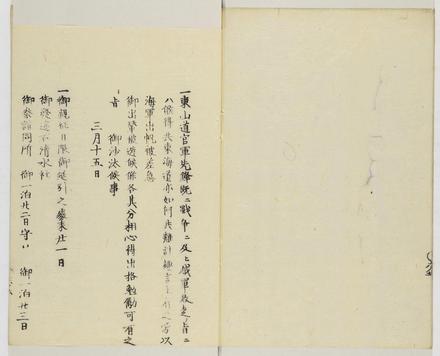 一東山道官軍先鋒既ニ戦争ニ及ヒ賊軍敗走ノ旨ニ
ハ候得共東海道亦如何共難計
海軍出帆被差急
御出輦被遊候條各其分相心得出格勉励可有之
旨 御沙汰候事
三月十五日
一御親征日限御延引之 来廿一日
石清水社
御参詣同所 御一泊廿二日守口 御一泊廿三日